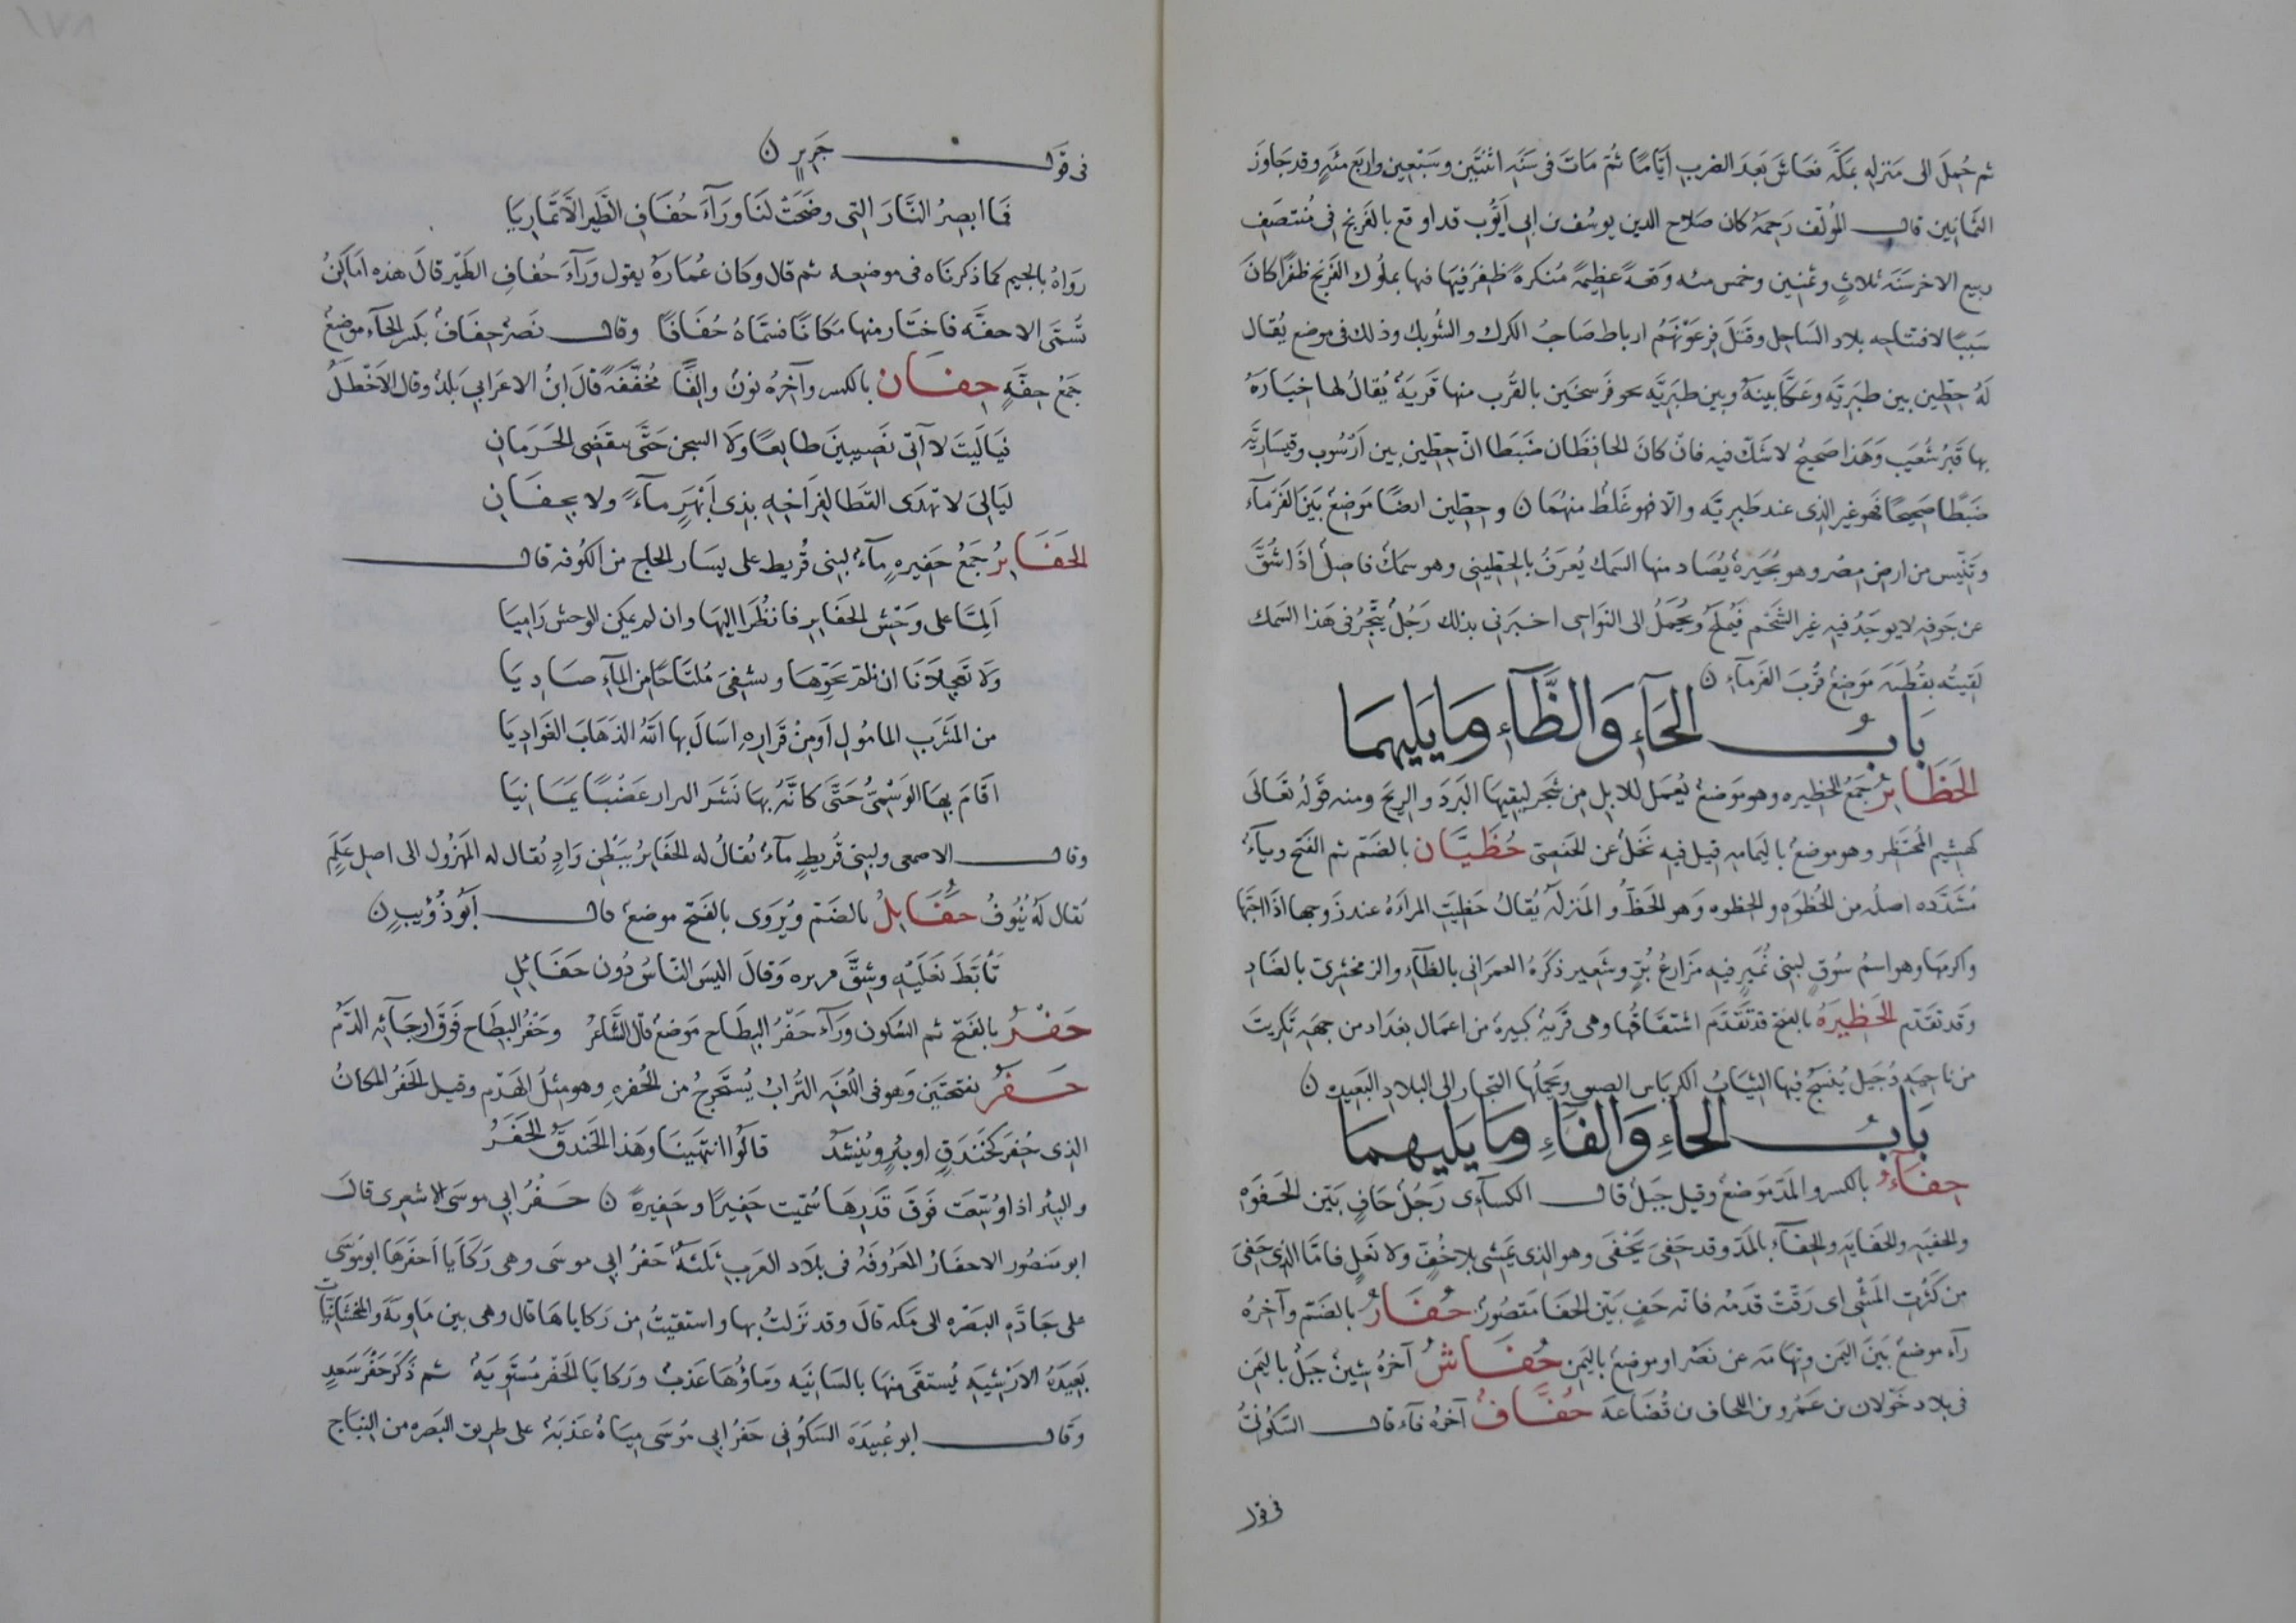 ثم حُمِلَ الى مَنزله بمَكَّه فعَاشَ بَعدَ الضرب ايّامًا ثُمّ مَاتَ فى سَنَه اثنتَين وسَبْعين واربَع مئهٍ وقد جَاوَزَ
الثمانين قال المؤلّف رَحمَهُ كان صَلاح الدين يوسُف بن ابى ايّوُب قد اوقع بالفَرنج فى مُنتصَف
ربيع الاخر سَنَه ثلاثٍ وثمنين وخمس مئه وَقعَهً عظيمهً مُنكرهً ظفِرَ فيهَا فيها بملُوك الفَرنج ظَفَرًا كانَ
سَببًا لافتتاحِه بلاد السَاحِل وقتَلَ فِرعَوْنَهُم ارباط صَاحبُ الكرك والشَوبك وذلك فى موضع يُقال
لهُ حِطّين بين طبَريَّه وعَكّا بينهُ وبين طبَريَّه نحو فَرسخَين بالقُرب منها قَريَهُ يُقالُ لها خيَارَهُ
بها قَبرُ شُعَيب وَهَذا صَحيح لا شَكّ فيه فان كانَ الحافظَان ضَبَطا انّ حِطّين بين اَرسُوب وقيسَاريَّه
ضَبطًا صَحِيحًا فهو غير الذى عند طَبريَّه والّا فهو غَلَط منهُمان وحِطّين ايضًا مَوضِعُ بَيَن الفَرمَآء
وتِنّيس من ارض مِصْر وهو بُحَيرهُ يُصَاد منها السَمك يُعرَفُ بالحِطّينى وهو سمَكُ فاضِل اذا شُقَّ
عن جَوفه لا يوجَدُ فيه غير الشَحم فيُملّحُ ويُحمَلُ الى النوَاحى اخبَرَنى بذلك رَجُلُ يتَّجِرُ فى هَذا السَمك
لَقِيتُه بقَطيَه مَوضِعُ قُربَ الفَرمَآءِ ن
بَابُ الحَآءِ وَالظَّآءِ وَمَا يَليهمَا
الحَظَايرُ جَمعُ الحَظيره وهو مَوضعُ يُعمَل للابل من شَجَر ليقِيَهَا البَردَ والريحَ ومنه قَولُهُ تعَالَى
كهشيم المُحتَظر وهو موضعُ باليَمامهِ قيل فيهِ نَخلُ عن الحَفصى حُظَيَّان بالضَمّ ثم الفَتح ويآءُ
مُشَدَّده اصلُه من الحُظوَه والحِظوه وَهو الحَظّ والمَنزلَه يُقالُ حَظِيَتِ المرَاءهُ عند زَوجها اذا احَبَّها
واكرمَها وهو اسمُ سُوقٍ لبنى نُمَيرٍ فيهِ مَزَارعُ بُرٍّ وشَعِير ذكَرَهُ العمرَانى بالظآءِ والزمخشرىّ بالضَادِ
وَقد تقدّم الحَظيِرَهُ بالفتح قد تَقَدّم اشتقَاقُها وهى قَريَهُ كبيرهُ من اعمَال بغدَاد من جهَه تكريت
من ناحيَهِ دُجَيل يُنسَجُ فيها الثيَابُ الكربَاس الصفيق ويَحمِلُها التجارُ الى البلاد البَعيده ن
بَابُ الحَاءِ وَالفَاءِ وَمَا يَليهمَا
حِفَآءُ بالكسر والمدّ مَوضعُ وقيل جَبَلُ قال الكسآءى رَجُلُ حَافٍ بَيّن الحَفوَه
والحِفيَه والحفَايَه والحِفآءِ بالمَدّ وقد حَفِىَ يَحْفَى وهو الذى يَمشى بلا خُفٍّ ولا نَعلٍ فامّا الذى حَفِىَ
من كَثرتِ المَشْى اى رَقّت قدَمُه فانّه حَفٍ بَيّن الحفَا مَقصُورُ حُفَارُ بالضَمّ وآخرهُ
رآء موضعُ بَيَن اليمن وتهَامَه عن نَصْر او موضعُ باليَمن حُفَاشُ آخرهُ شينُ جَبَلُ باليَمن
فى بلاد خَولان بن عَمْرو بن الحاف بن قُضَاعَه حُفَّافُ آخرهُ فآء قال السَكُونىُّ
فى قول
فى قَولِ جَريرٍ ن
فمَا ابصرُ النَّارَ التى وضَحَتْ لنَا وَرَآءَ حُفَافِ الطَيرِ الَّا تمَارِيَا
رَوَاهُ بالجيم كما ذكرنَاه فى موضعِه ثم قال وكان عُمَارهُ يقول وَرَآءَ حُفافِ الطَيّر قالَ هذه امَاكنُ
تُسَمَّى الاحفَّه فاختَار منها مَكانًا فسَمَّاهُ حُفَافًا وقال نَصْرُ حِفَافُ بكسر الحآء موضعُ
جَمعُ حِفَّهٍ حِفَان بالكسر وآخرهُ نونُ والفَا مُخفَّفَه قالَ ابنُ الاعرَابى بَلدُ وقال الاَخْطلُ
فيَا لَيتَ لا آتى نَصِيبينَ طايعًا وَلا السجن حَتَّى ينقضى الحَرَمَانِ
ليَالِىَ لا تهدَى القَطا لفِرَاخِهِ بذِى اَبْهَرٍ مآءً ولا بحِفَانِ
الحَفَايرُ جَمعُ حَفيرهٍ مآءُ لبنى قُريط على يسَار الحاج من الكُوفه قال
اَلِمَّا على وَحْشِ الحفَايرِ فانظُرا اليهَا وان لم يمكن للوحش رَامِيَا
وَلا تعجِلَانَا ان نلم نَحْوهَا ونشفىَ مُلتَاحًا من المآءِ صَادِيَا
من المَشرَب المامُولِ اَو مِنْ قَرَارهِ اسَالَ بها اللّهُ الذهَابَ الغَوادِيَا
اقَامَ بهَا الوَسْمىُّ حَتَّى كانَّهُ بهَا نَشَرَ البزار عَصْبًا يمَانِيَا
وقال الاصمعى ولبنى قُريطٍ مآءُ يُقالُ له الحَفَايرُ ببَطْن وَادٍ يُقال له المَهْزُول الى اصل عَلَمٍ
يُقال لَهُ يُنُوفُ حُفَايِلُ بالضَمّ ويُروَى بالفَتح موضعُ قال اَبُو ذُؤَيبٍ ن
تَأبَّطَ نَعلَيْهِ وشِقَّ مريره وَقالَ اليسَ النّاسُ دُون حَفَايِلِ
حَفْرُ بالفَتح ثم السُكون وَرَآء حَفْرُ البِطَاح مَوضعُ قال الشَاعرُ وحَفْرُ البِطَاح فَوقَ ارجَآئه الدَّمُ
حَفَرُ بفتحتَين وَهو فى اللُغَه التُرابُ يُستَخرجُ من الحُفرهِ وهو مثلُ الهَدَم وقيل الحَفَرُ المكانُ
الذى حُفِرَ كخَندَقٍ او بئرٍ ويُنشَدُ قالُوا انتَهَينَا وهَذا الخندَقُ الحَفَرُ
والبئر اذا وُسّعَت فَوقَ قَدَرِهَا سُمّيت حَفِيرًا وحَفِيرهً ن حَفَرُ ابى موسَى الاشعرى قالَ
ابو مَنصُور الاحفَارُ المعَروفَهُ فى بلَاد العَرب ثلثَهُ حَفرُ ابى موسَى وهى رَكَايَا احفَرهَا ابو مُوسَى
على جَادّهِ البَصْره الى مَكه قالَ وقد نزَلتُ بها واستقيتُ من رَكاياهَا قال وهى بين مَاويّهَ والمنجشَانيّات
بَعِيدَهُ الارَشيَهِ يُستقَى منهَا بالسَانيَه ومَاؤُهَا عَذبُ ورَكايَا الحَفْر مُستَويَهُ ثم ذَكَرَ حَفْرَ سَعدٍ
وقَال ابو عُبَيدَه السَكُونى حَفَرُ ابى مُوسَى ميَاهُ عَذبَهُ على طريق البَصره من النِبَاج